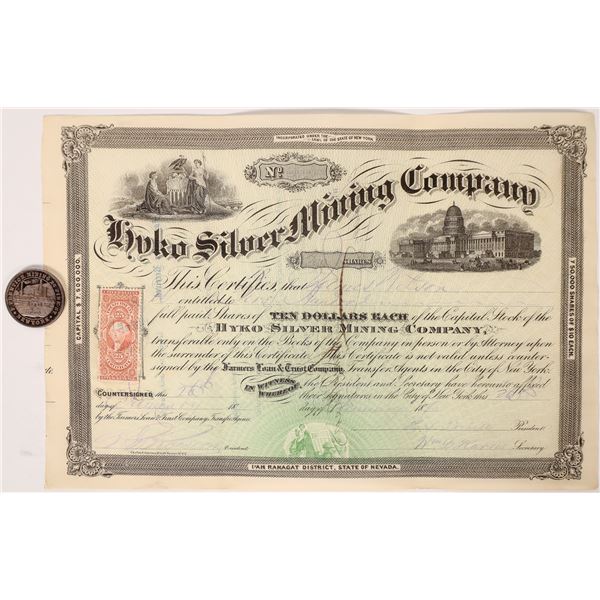 INCORPORATED UNDER THE LAWS OF THE STATE OF NEW YORK.
No.
Hyko Silver Mining Company
SHARES
CAPITAL $7,500,000.
750,000 SHARES OF $10 EACH.
This Certifies, that James Wilson
entitled to One Hundred
full paid Shares of TEN DOLLARS EACH of the Capital Stock of the
HYKO SILVER MINING COMPANY,
transferable only on the Books of the Company in person or by Attorney upon
the surrender of this Certificate. This Certificate is not valid unless counter-
signed by the Farmers Loan & Trust Company, Transfer Agents in the City of New York.
COUNTERSIGNED this 26th
day of 18
by the Farmers Loan & Trust Company, Transfer Agents
President
IN WITNESS WHEREOF,
the President and Secretary have hereunto affixed
their signatures in the City of New York this 26th
day of 18
President
Secretary
PAH RANAGAT DISTRICT, STATE OF NEVADA.